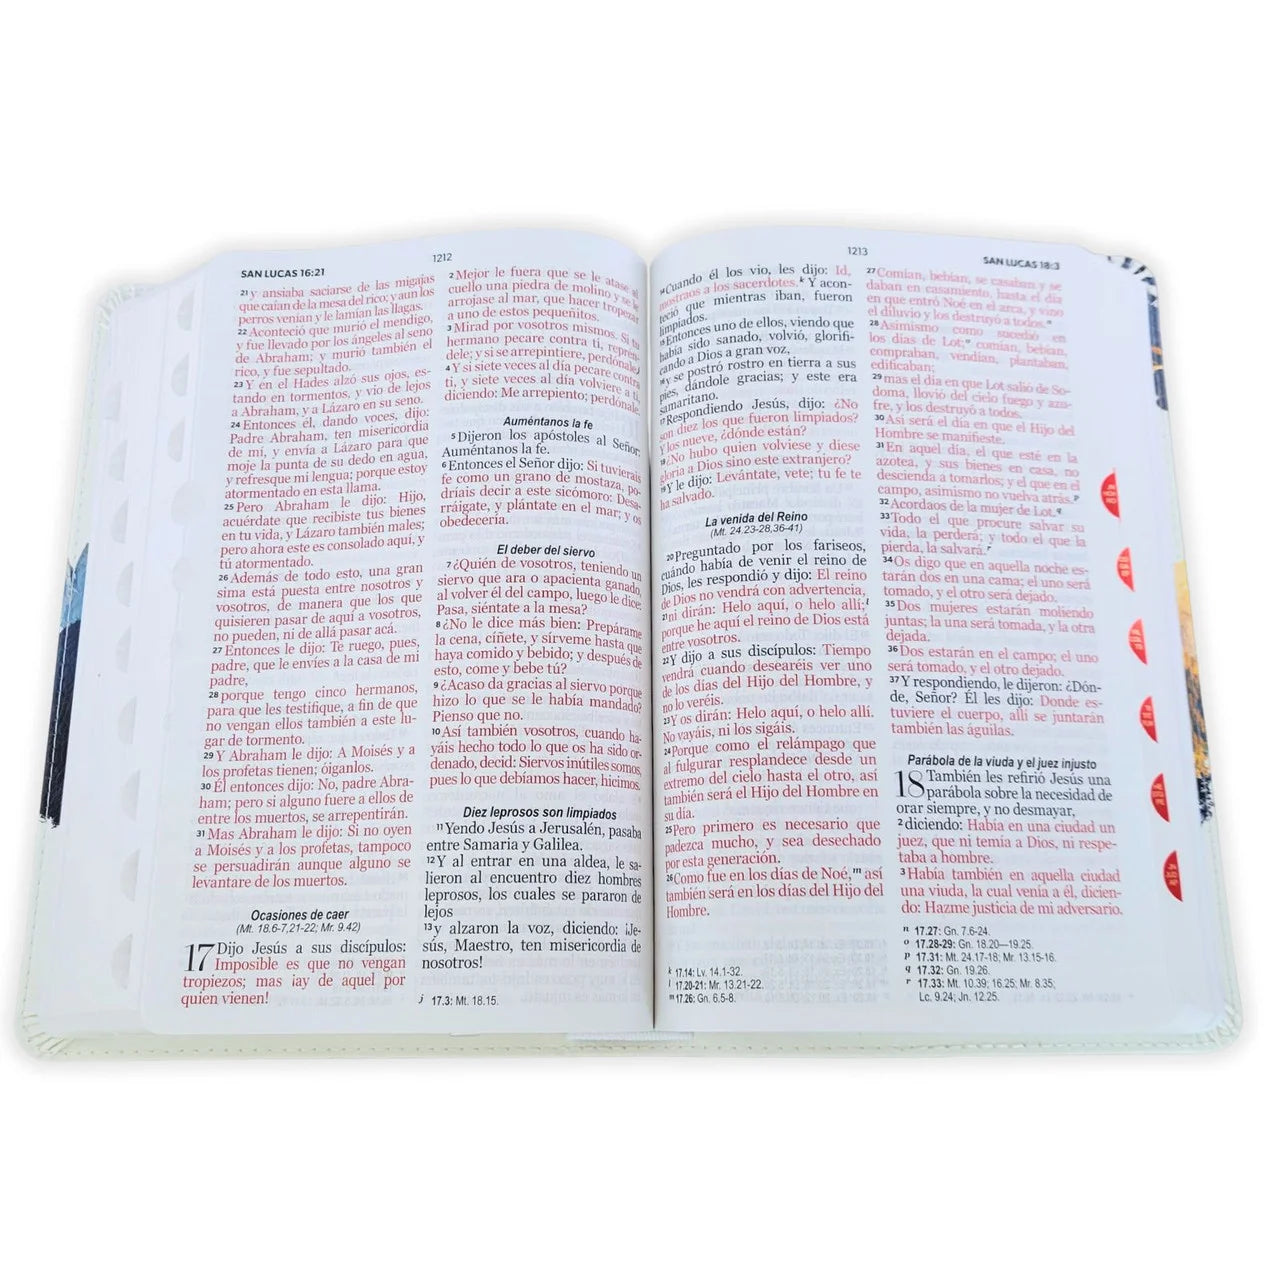 SAN LUCAS 16:21
1212
21 y ansiaba saciarse de las migajas
que caían de la mesa del rico; y aun los
perros venían y le lamían las llagas.
22 Aconteció que murió el mendigo,
y fue llevado por los ángeles al seno
de Abraham; y murió también el
rico, y fue sepultado.
23 Y en el Hades alzó sus ojos, es-
tando en tormentos, y vio de lejos
a Abraham, y a Lázaro en su seno.
24 Entonces él, dando voces, dijo:
Padre Abraham, ten misericordia
de mí, y envía a Lázaro para que
moje la punta de su dedo en agua,
y refresque mi lengua; porque estoy
atormentado en esta llama.
25 Pero Abraham le dijo: Hijo,
acuérdate que recibiste tus bienes
en tu vida, y Lázaro también males;
pero ahora este es consolado aquí, y
tú atormentado.
26 Además de todo esto, una gran
sima está puesta entre nosotros y
vosotros, de manera que los que
quisieren pasar de aquí a vosotros,
no pueden, ni de allá pasar acá.
27 Entonces le dijo: Te ruego, pues,
padre, que le envíes a la casa de mi
padre,
28 porque tengo cinco hermanos,
para que les testifique, a fin de que
no vengan ellos también a este lu-
gar de tormento.
29 Y Abraham le dijo: A Moisés y a
los profetas tienen; óiganlos.
30 Él entonces dijo: No, padre Abra-
ham; pero si alguno fuere a ellos de
entre los muertos, se arrepentirán.
31 Mas Abraham le dijo: Si no oyen
a Moisés y a los profetas, tampoco
se persuadirán aunque alguno se
levantare de los muertos.
Ocasiones de caer
(Mt. 18.6-7,21-22; Mr. 9.42)
17 Dijo Jesús a sus discípulos:
Imposible es que no vengan
tropiezos; mas ¡ay de aquel por
quien vienen!
2 Mejor le fuera que se le atase al
cuello una piedra de molino y se le
arrojase al mar, que hacer tropezar
a uno de estos pequeñitos.
3 Mirad por vosotros mismos. Si tu
hermano pecare contra ti, reprén-
dele; y si se arrepintiere, perdónale. j
4 Y si siete veces al día pecare contra
ti, y siete veces al día volviere a ti,
diciendo: Me arrepiento; perdónale.
Auméntanos la fe
5 Dijeron los apóstoles al Señor:
Auméntanos la fe.
6 Entonces el Señor dijo: Si tuvierais
fe como un grano de mostaza, po-
dríais decir a este sicómoro: Desa-
rráigate, y plántate en el mar; y os
obedecería.
El deber del siervo
7 ¿Quién de vosotros, teniendo un
siervo que ara o apacienta ganado,
al volver él del campo, luego le dice:
Pasa, siéntate a la mesa?
8 ¿No le dice más bien: Prepárame
la cena, cíñete, y sírveme hasta que
haya comido y bebido; y después de
esto, come y bebe tú?
9 ¿Acaso da gracias al siervo porque
hizo lo que se le había mandado?
Pienso que no.
10 Así también vosotros, cuando ha-
yáis hecho todo lo que os ha sido or-
denado, decid: Siervos inútiles somos,
pues lo que debíamos hacer, hicimos.
Diez leprosos son limpiados
11 Yendo Jesús a Jerusalén, pasaba
entre Samaria y Galilea.
12 Y al entrar en una aldea, le sa-
lieron al encuentro diez hombres
leprosos, los cuales se pararon de
lejos
13 y alzaron la voz, diciendo: ¡Je-
sús, Maestro, ten misericordia de
nosotros!
j 17.3: Mt. 18.15.
1213
SAN LUCAS 18:3
14 Cuando él los vio, les dijo: Id,
mostraos a los sacerdotes. k Y acon-
teció que mientras iban, fueron
limpiados.
15 Entonces uno de ellos, viendo que
había sido sanado, volvió, glorifi-
cando a Dios a gran voz,
16 y se postró rostro en tierra a sus
pies, dándole gracias; y este era
samaritano.
17 Respondiendo Jesús, dijo: ¿No
son diez los que fueron limpiados?
Y los nueve, ¿dónde están?
18 ¿No hubo quien volviese y diese
gloria a Dios sino este extranjero?
19 Y le dijo: Levántate, vete; tu fe te
ha salvado.
La venida del Reino
(Mt. 24.23-28,36-41)
20 Preguntado por los fariseos,
cuándo había de venir el reino de
Dios, les respondió y dijo: El reino
de Dios no vendrá con advertencia,
21 ni dirán: Helo aquí, o helo allí; l
porque he aquí el reino de Dios está
entre vosotros.
22 Y dijo a sus discípulos: Tiempo
vendrá cuando desearéis ver uno
de los días del Hijo del Hombre, y
no lo veréis.
23 Y os dirán: Helo aquí, o helo allí.
No vayáis, ni los sigáis.
24 Porque como el relámpago que
al fulgurar resplandece desde un
extremo del cielo hasta el otro, así
también será el Hijo del Hombre en
su día.
25 Pero primero es necesario que
padezca mucho, y sea desechado
por esta generación.
26 Como fue en los días de Noé, m así
también será en los días del Hijo del
Hombre.
k 17.14: Lv. 14.1-32.
l 17.20-21: Mr. 13.21-22.
m 17.26: Gn. 6.5-8.
27 Comían, bebían, se casaban y se
daban en casamiento, hasta el día
en que entró Noé en el arca, y vino
el diluvio y los destruyó a todos. n
28 Asimismo como sucedió en
los días de Lot; o comían, bebían,
compraban, vendían, plantaban,
edificaban;
29 mas el día en que Lot salió de So-
doma, llovió del cielo fuego y azu-
fre, y los destruyó a todos.
30 Así será el día en que el Hijo del
Hombre se manifieste.
31 En aquel día, el que esté en la
azotea, y sus bienes en casa, no
descienda a tomarlos; y el que en el
campo, asimismo no vuelva atrás. p
32 Acordaos de la mujer de Lot. q
33 Todo el que procure salvar su
vida, la perderá; y todo el que la
pierda, la salvará. r
34 Os digo que en aquella noche es-
tarán dos en una cama; el uno será
tomado, y el otro será dejado.
35 Dos mujeres estarán moliendo
juntas; la una será tomada, y la otra
dejada.
36 Dos estarán en el campo; el uno
será tomado, y el otro dejado.
37 Y respondiendo, le dijeron: ¿Dón-
de, Señor? Él les dijo: Donde es-
tuviere el cuerpo, allí se juntarán
también las águilas.
Parábola de la viuda y el juez injusto
18 También les refirió Jesús una
parábola sobre la necesidad de
orar siempre, y no desmayar,
2 diciendo: Había en una ciudad un
juez, que ni temía a Dios, ni respe-
taba a hombre.
3 Había también en aquella ciudad
una viuda, la cual venía a él, dicien-
do: Hazme justicia de mi adversario.
n 17.27: Gn. 7.6-24.
o 17.28-29: Gn. 18.20—19.25.
p 17.31: Mt. 24.17-18; Mr. 13.15-16.
q 17.32: Gn. 19.26.
r 17.33: Mt. 10.39; 16.25; Mr. 8.35;
Lc. 9.24; Jn. 12.25.